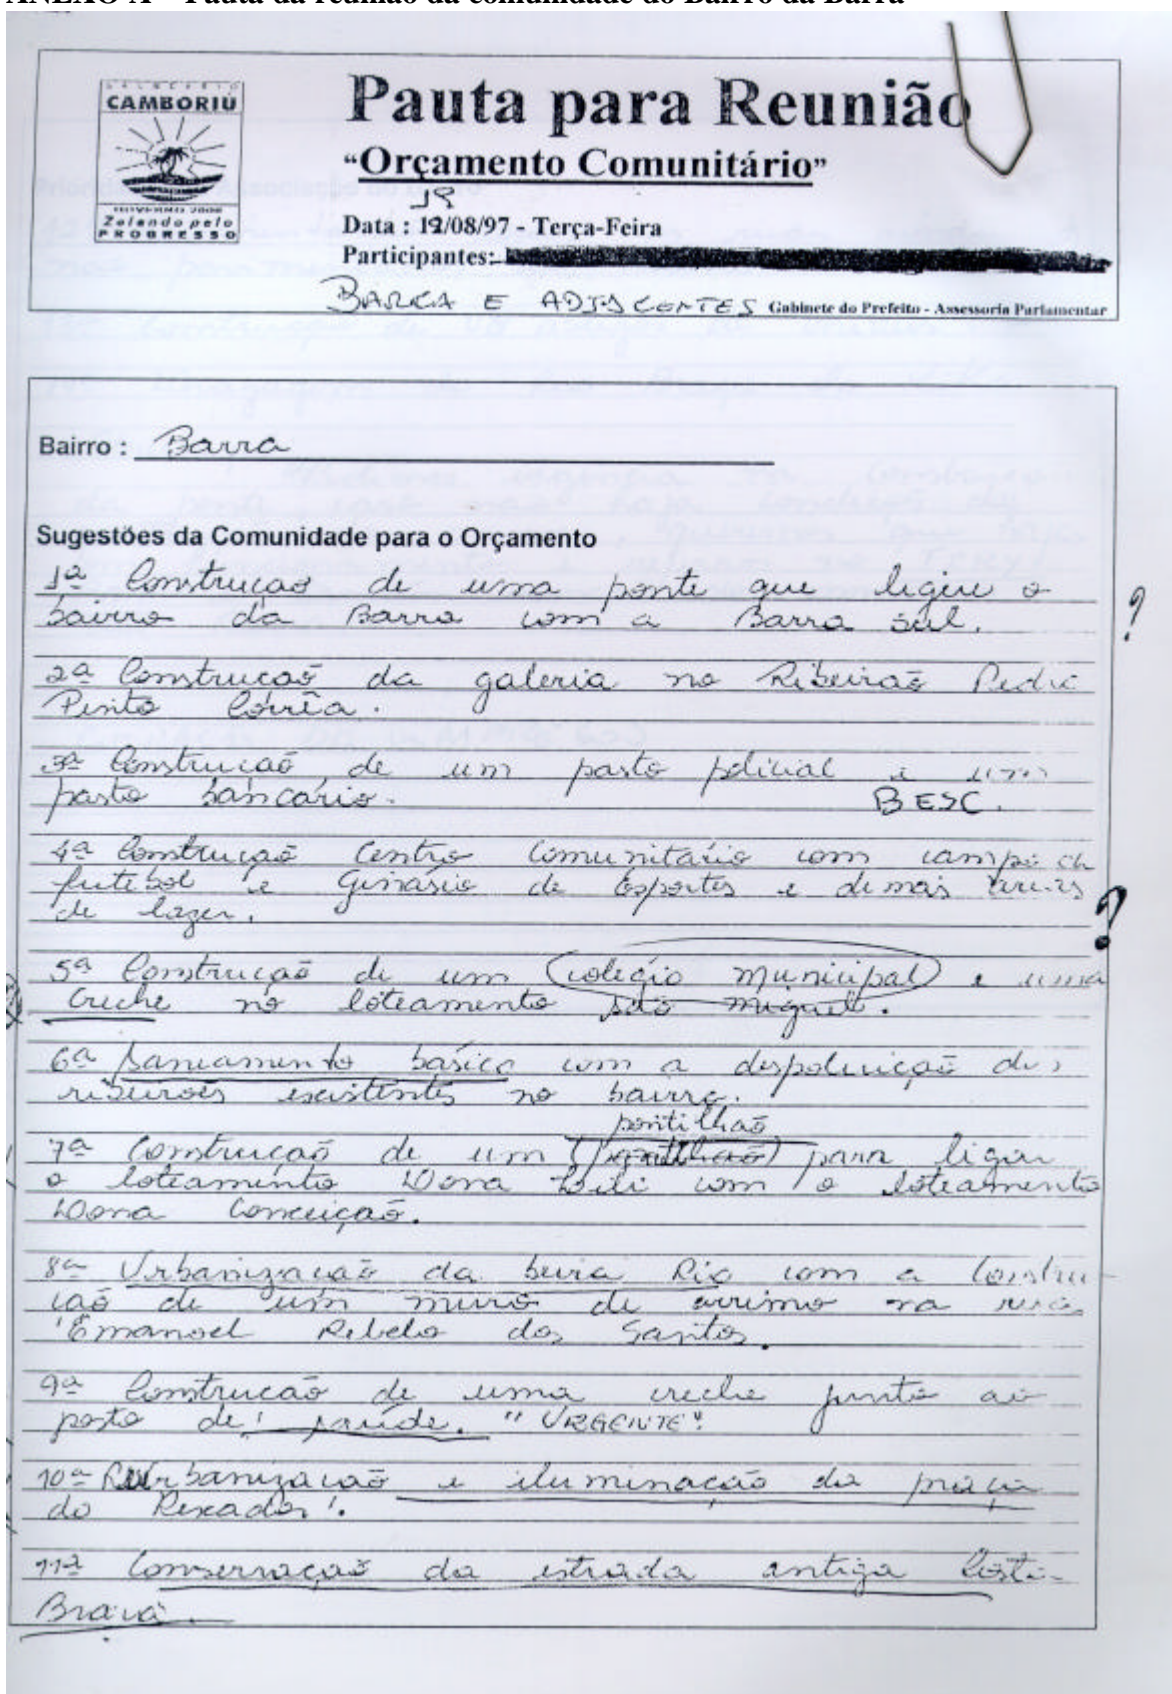 ANEXO A – Pauta da reunião da comunidade do Bairro da Barra
BALNEÁRIO
CAMBORIÚ
GOVERNO 2000
Zelando pelo
PROGRESSO
Pauta para Reunião
"Orçamento Comunitário"
19
Data : 12/08/97 - Terça-Feira
Participantes:
BARRA E ADJSCENTES Gabinete do Prefeito - Assessoria Parlamentar
Bairro : Barra
Sugestões da Comunidade para o Orçamento
1ª Construçaõ de uma ponte que ligue o
bairro da Barra com a Barra sul.
?
2ª Construçaõ da galeria no Ribeiraõ Pedro
Pinto Corrêa.
3ª Construcaõ de um posto policial e um
posto bancário. BESC.
4ª Construçaõ Centro Comunitário com campo de
futebol e Ginásio de Esportes e demais áreas
de lazer.
?
5ª Construçaõ de um colégio municipal e uma
creche no loteamento são miguel.
6ª Saneamento basíco com a despoluiçaõ dos
ribeirões existentes no bairro.
pontilhaõ
7ª Construcaõ de um (pontilhaõ) para ligar
o loteamento Dona Lili com o loteamento
Dona Conceiçaõ.
8ª Urbanizacaõ da beira Rio com a Constru-
çaõ de um muro de arrimo na rua
Emanoel Rebelo dos Santos.
9ª Construcaõ de uma creche junto ao
posto de saúde. "URGENTE"
10ª Reurbanizacaõ e iluminacaõ da praça
do Pescador.
11ª Conservacaõ da estrada antiga Costa
Brava.